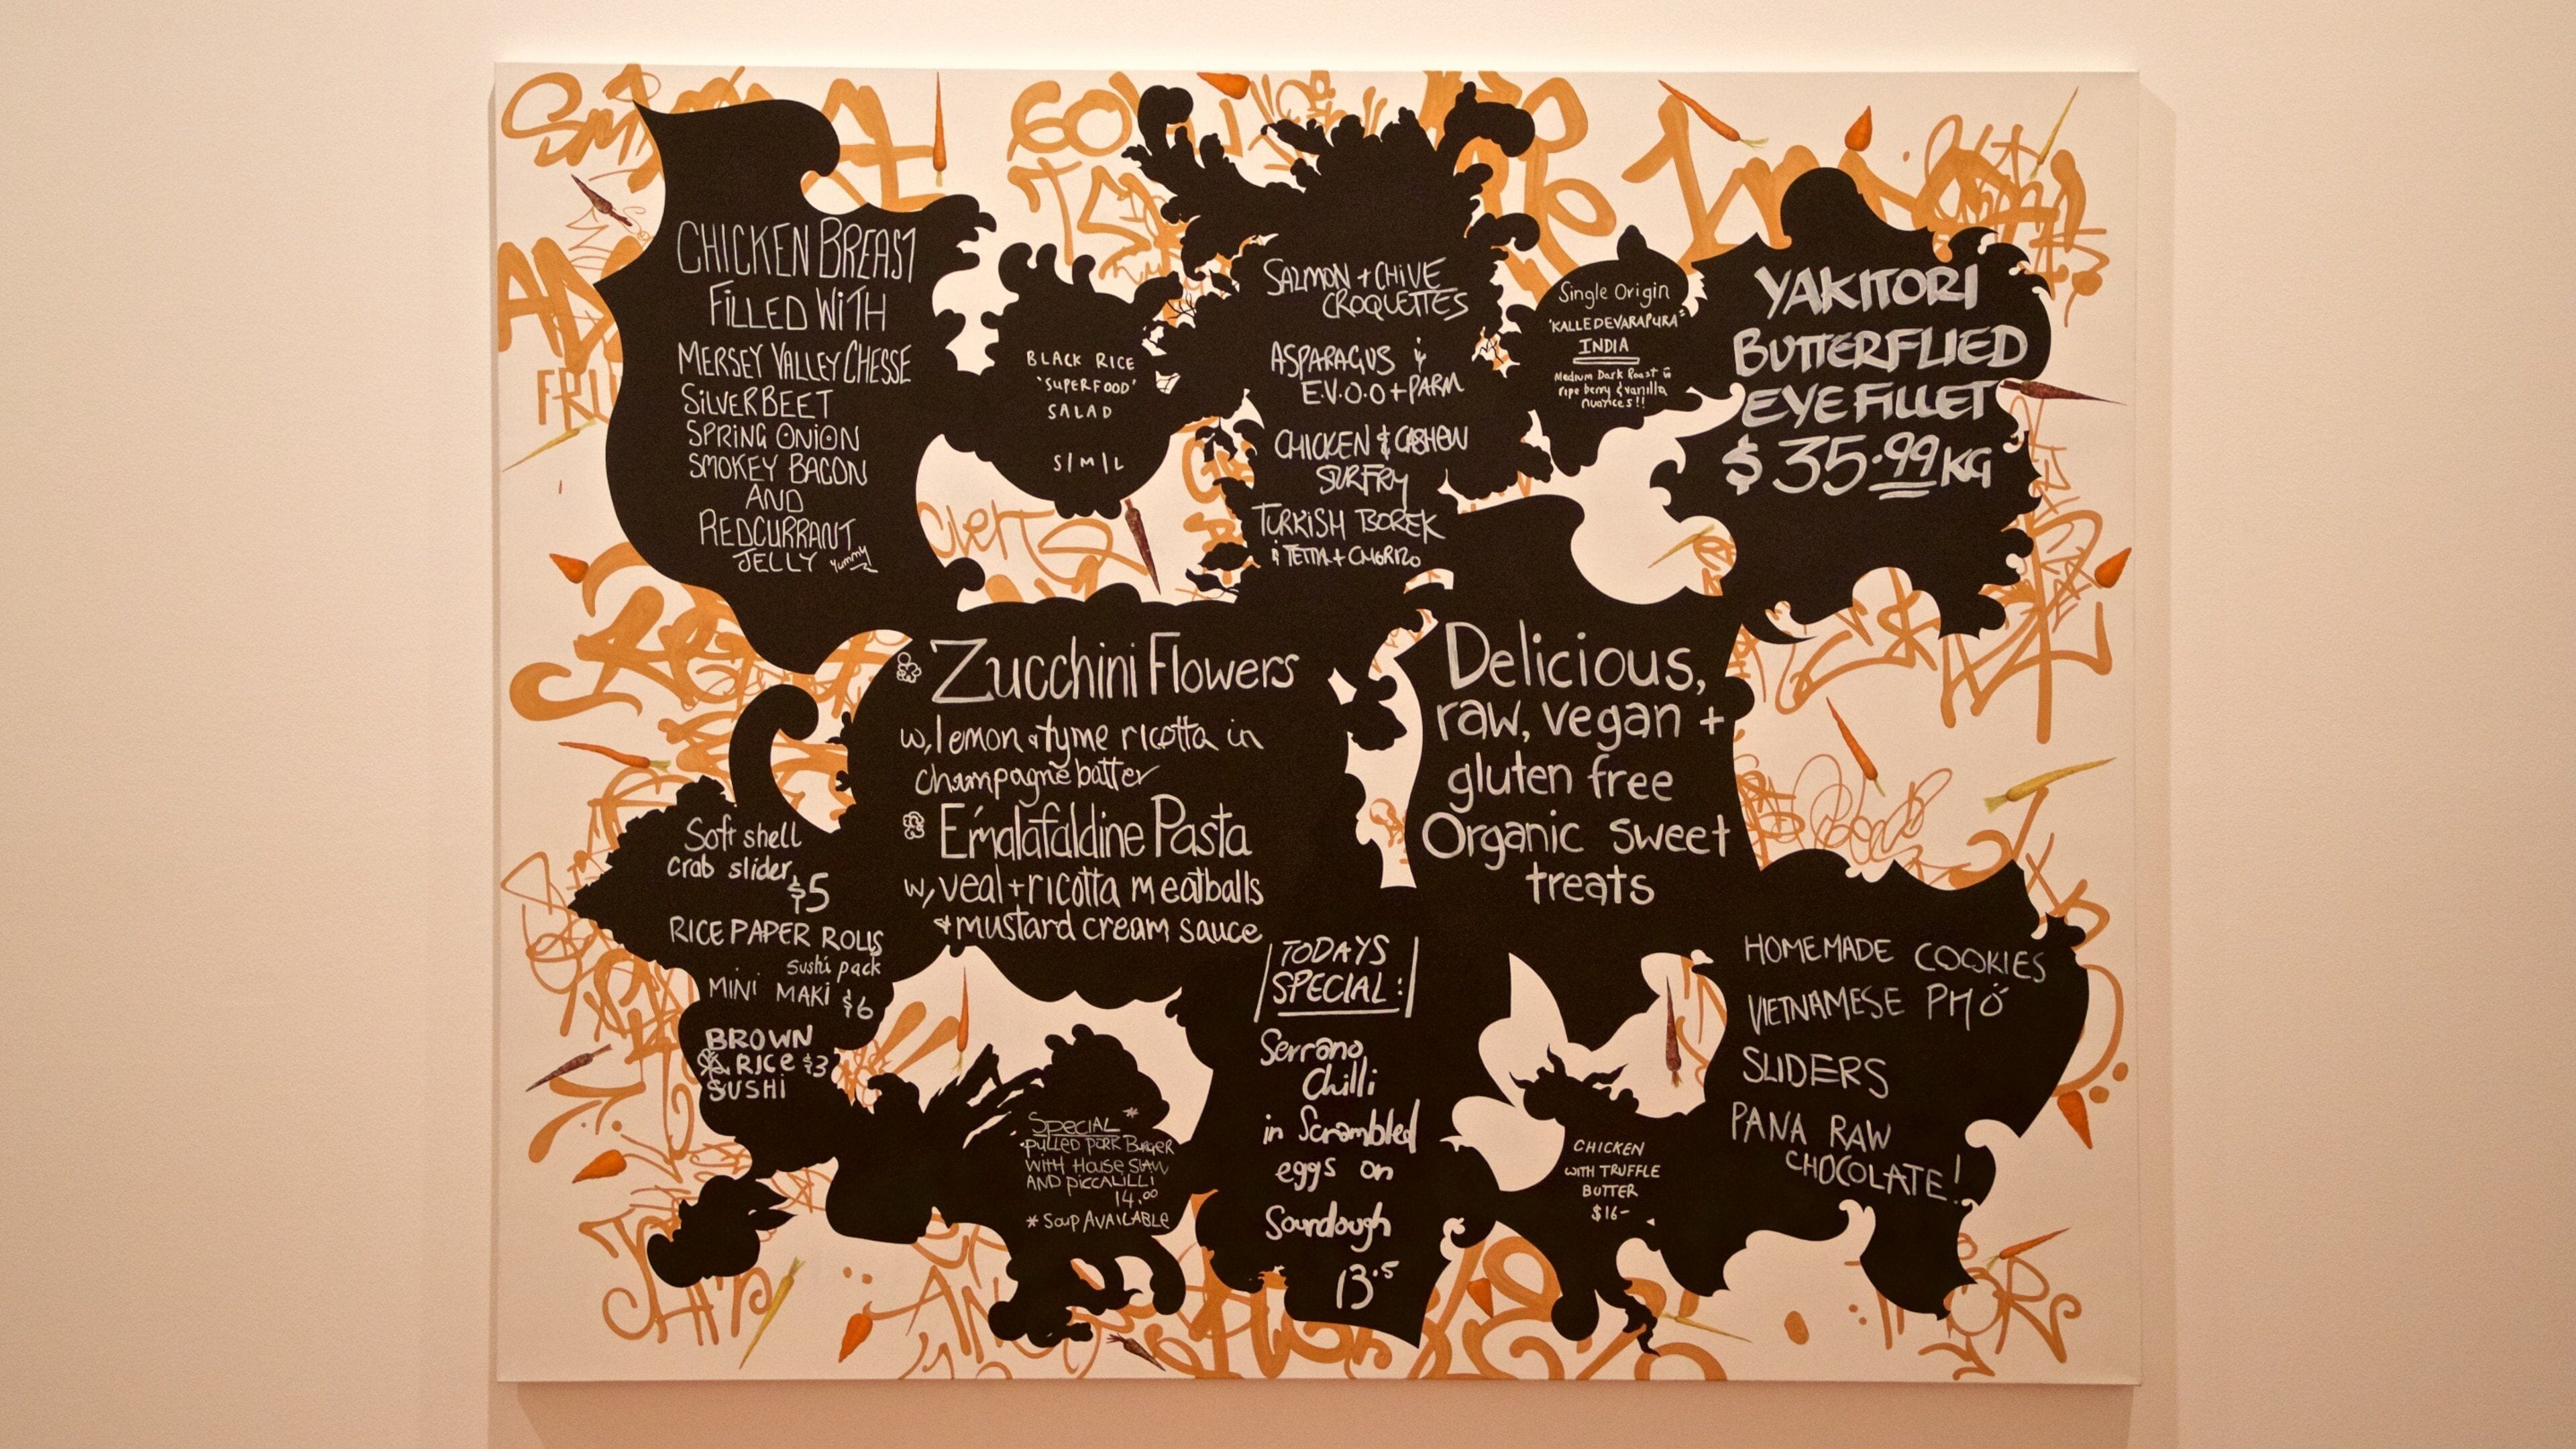 CHICKEN BREAST
FILLED WITH
MERSEY VALLEY CHESSE
SILVERBEET
SPRING ONION
SMOKEY BACON
AND
REDCURRANT
JELLY yummy
BLACK RICE
'SUPERFOOD'
SALAD
S/M/L
SALMON + CHIVE
CROQUETTES
ASPARAGUS &
E.V.O.O + PARM
CHICKEN & CASHEW
TURKISH BOREK
Single Origin
'KALLEDEVARAPURA'
INDIA
Medium Dark Roast
ripe berry & vanilla
nuances!!
YAKITORI
BUTTERFLIED
EYE FILLET
$35.99 KG
Zucchini Flowers
w, lemon & tyme ricotta in
champagne batter
Pasta
w, veal + ricotta meatballs
& mustard cream sauce
Delicious,
raw, vegan +
gluten free
Organic sweet
treats
Soft shell
crab slider
$5
RICE PAPER ROLLS
Sushi pack
MINI MAKI $6
BROWN
RICE $3
SUSHI
SPECIAL *
PULLED PORK BURGER
WITH HOUSE SLAW
AND PICCALILLI
14.00
* SOUP AVAILABLE
TODAYS
SPECIAL:
Serrano
Chilli
in Scrambled
eggs on
Sourdough
13.5
CHICKEN
WITH TRUFFLE
BUTTER
$16-
HOMEMADE COOKIES
VIETNAMESE PHO
SLIDERS
PANA RAW
CHOCOLATE!